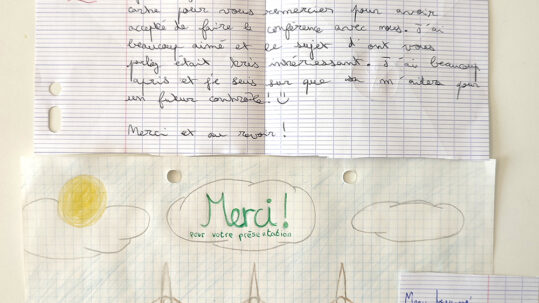 carte pour vous remercier pour avoir
accepté de faire la conférence avec nous. J'ai
beaucoup aimé et le sujet d'ont vous
parlez était très intéressant. J'ai beaucoup
apris et je suis sur que sa m'aidera pour
un futur contrôle!
Merci et au revoir!
Merci!
pour votre présentation